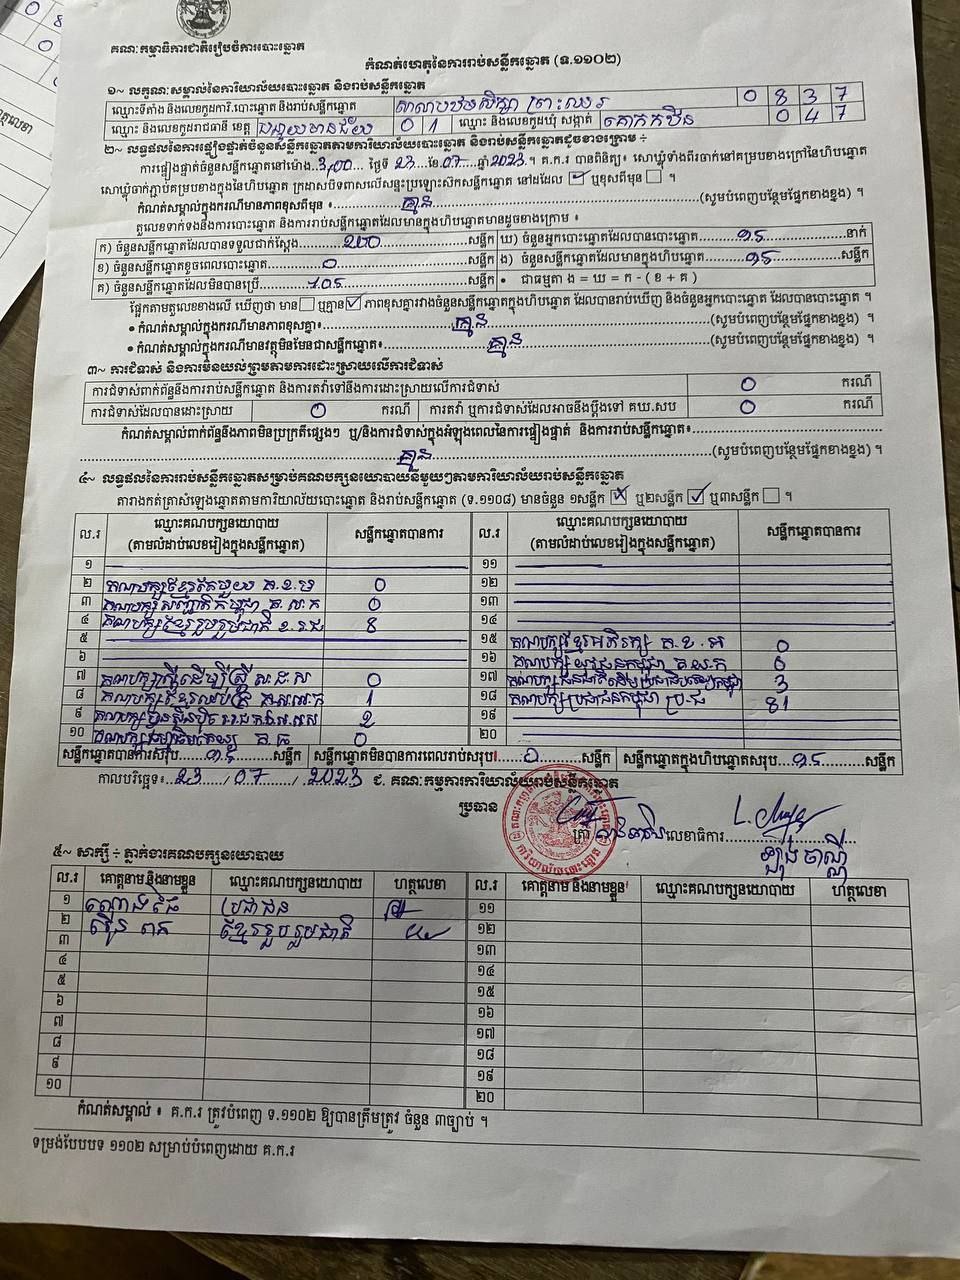 គណៈកម្មាធិការជាតិរៀបចំការបោះឆ្នោត
កំណត់ហេតុនៃការរាប់សន្លឹកឆ្នោត (ទ.១១០២)
១~ លក្ខណៈសម្គាល់នៃការិយាល័យបោះឆ្នោត និងរាប់សន្លឹកឆ្នោត
ឈ្មោះទីតាំង និងលេខកូដការិ.បោះឆ្នោត និងរាប់សន្លឹកឆ្នោត 0 8 3 7
ឈ្មោះ និងលេខកូដរាជធានី ខេត្ត បន្ទាយមានជ័យ 0 1 ឈ្មោះ និងលេខកូដឃុំ សង្កាត់ 0 4 7
២~ លទ្ធផលនៃការផ្ទៀងផ្ទាត់ចំនួនសន្លឹកឆ្នោតតាមការិយាល័យបោះឆ្នោត និងរាប់សន្លឹកឆ្នោតដូចខាងក្រោម ÷
ការផ្ទៀងផ្ទាត់ចំនួនសន្លឹកឆ្នោតនៅម៉ោង 3,00 ថ្ងៃទី 23 ខែ 07 ឆ្នាំ 2023 ។ គ.ក.រ បានពិនិត្យ៖ សោឃ្មុំទាំងពីរចាក់នៅគម្របខាងក្រៅនៃហិបឆ្នោត
សោឃ្មុំចាក់ភ្ជាប់គម្របខាងក្នុងនៃហិបឆ្នោត ក្រដាសបិទពាសលើសន្ទះប្រឡោះស៊កសន្លឹកឆ្នោត នៅដដែល ✓ ឬខុសពីមុន ។
កំណត់សម្គាល់ក្នុងករណីមានភាពខុសពីមុន ៖ គ្មាន (សូមបំពេញបន្ថែមផ្នែកខាងខ្នង) ។
តួលេខទាក់ទងនឹងការបោះឆ្នោត និងការរាប់សន្លឹកឆ្នោតដែលមានក្នុងហិបឆ្នោតមានដូចខាងក្រោម ៖
ក) ចំនួនសន្លឹកឆ្នោតដែលបានទទួលជាក់ស្តែង 200 សន្លឹក ឃ) ចំនួនអ្នកបោះឆ្នោតដែលបានបោះឆ្នោត ៩៥ នាក់
ខ) ចំនួនសន្លឹកឆ្នោតខូចពេលបោះឆ្នោត 0 សន្លឹក ង) ចំនួនសន្លឹកឆ្នោតដែលមានក្នុងហិបឆ្នោត ៩៥ សន្លឹក
គ) ចំនួនសន្លឹកឆ្នោតដែលមិនបានប្រើ 105 សន្លឹក • ជាធម្មតា ង = ឃ = ក - ( ខ + គ )
ផ្អែកតាមតួលេខខាងលើ ឃើញថា មាន ឬគ្មាន ✓ ភាពខុសគ្នារវាងចំនួនសន្លឹកឆ្នោតក្នុងហិបឆ្នោត ដែលបានរាប់ឃើញ និងចំនួនអ្នកបោះឆ្នោត ដែលបានបោះឆ្នោត ។
• កំណត់សម្គាល់ក្នុងករណីមានភាពខុសគ្នា៖ គ្មាន (សូមបំពេញបន្ថែមផ្នែកខាងខ្នង) ។
• កំណត់សម្គាល់ក្នុងករណីមានវត្ថុមិនមែនជាសន្លឹកឆ្នោត៖ គ្មាន (សូមបំពេញបន្ថែមផ្នែកខាងខ្នង) ។
៣~ ការជំទាស់ និងការមិនយល់ព្រមតាមការដោះស្រាយលើការជំទាស់
ការជំទាស់ពាក់ព័ន្ធនឹងការរាប់សន្លឹកឆ្នោត និងការតវ៉ាទៅនឹងការដោះស្រាយលើការជំទាស់ 0 ករណី
ការជំទាស់ដែលបានដោះស្រាយ 0 ករណី ការតវ៉ា ឬការជំទាស់ដែលអាចនឹងប្តឹងទៅ គឃ.សប 0 ករណី
កំណត់សម្គាល់ពាក់ព័ន្ធនឹងភាពមិនប្រក្រតីផ្សេងៗ ឬ/និងការជំទាស់ក្នុងអំឡុងពេលនៃការផ្ទៀងផ្ទាត់ និងការរាប់សន្លឹកឆ្នោត៖
គ្មាន (សូមបំពេញបន្ថែមផ្នែកខាងខ្នង) ។
៤~ លទ្ធផលនៃការរាប់សន្លឹកឆ្នោតសម្រាប់គណបក្សនយោបាយនីមួយៗតាមការិយាល័យរាប់សន្លឹកឆ្នោត
តារាងកត់ត្រាសំឡេងឆ្នោតតាមការិយាល័យបោះឆ្នោត និងរាប់សន្លឹកឆ្នោត (ទ.១១០៨) មានចំនួន ១សន្លឹក ឬ២សន្លឹក ✓ ឬ៣សន្លឹក ។
ល.រ ឈ្មោះគណបក្សនយោបាយ (តាមលំដាប់លេខរៀងក្នុងសន្លឹកឆ្នោត) សន្លឹកឆ្នោតបានការ ល.រ ឈ្មោះគណបក្សនយោបាយ (តាមលំដាប់លេខរៀងក្នុងសន្លឹកឆ្នោត) សន្លឹកឆ្នោតបានការ
១ ១១
២ គណបក្សខ្មែរតែមួយ គ.ខ.ម 0 ១២
៣ 0 ១៣
៤ គណបក្សខ្មែររួបរួមជាតិ ខ.រ.ជ 8 ១៤
៥ ១៥ គណបក្សខ្មែរអភិរក្ស គ.ខ.អ 0
៦ ១៦ គណបក្សយុវជនកម្ពុជា គ.យ.ក 0
៧ គណបក្សស្ត្រីដើម្បីស្ត្រី ស.ដ.ស 0 ១៧ 3
៨ 1 ១៨ គណបក្សប្រជាជនកម្ពុជា ប្រ.ជ 81
៩ 2 ១៩
១០ 0 ២០
សន្លឹកឆ្នោតបានការសរុប ៩៥ សន្លឹក សន្លឹកឆ្នោតមិនបានការពេលរាប់សរុប 0 សន្លឹក សន្លឹកឆ្នោតក្នុងហិបឆ្នោតសរុប ៩៥ សន្លឹក
កាលបរិច្ឆេទ៖ 23 / 07 / 2023 ជ. គណៈកម្មការការិយាល័យរាប់សន្លឹកឆ្នោត
ប្រធាន
លេខាធិការ
៥~ សាក្សី ÷ ភ្នាក់ងារគណបក្សនយោបាយ
ល.រ គោត្តនាម និងនាមខ្លួន ឈ្មោះគណបក្សនយោបាយ ហត្ថលេខា ល.រ គោត្តនាម និងនាមខ្លួន ឈ្មោះគណបក្សនយោបាយ ហត្ថលេខា
១ ប្រជាជន ១១
២ ខ្មែររួបរួមជាតិ ១២
៣ ១៣
៤ ១៤
៥ ១៥
៦ ១៦
៧ ១៧
៨ ១៨
៩ ១៩
១០ ២០
កំណត់សម្គាល់ ៖ គ.ក.រ ត្រូវបំពេញ ទ.១១០២ ឱ្យបានត្រឹមត្រូវ ចំនួន ៣ច្បាប់ ។
ទម្រង់បែបបទ ១១០២ សម្រាប់បំពេញដោយ គ.ក.រ